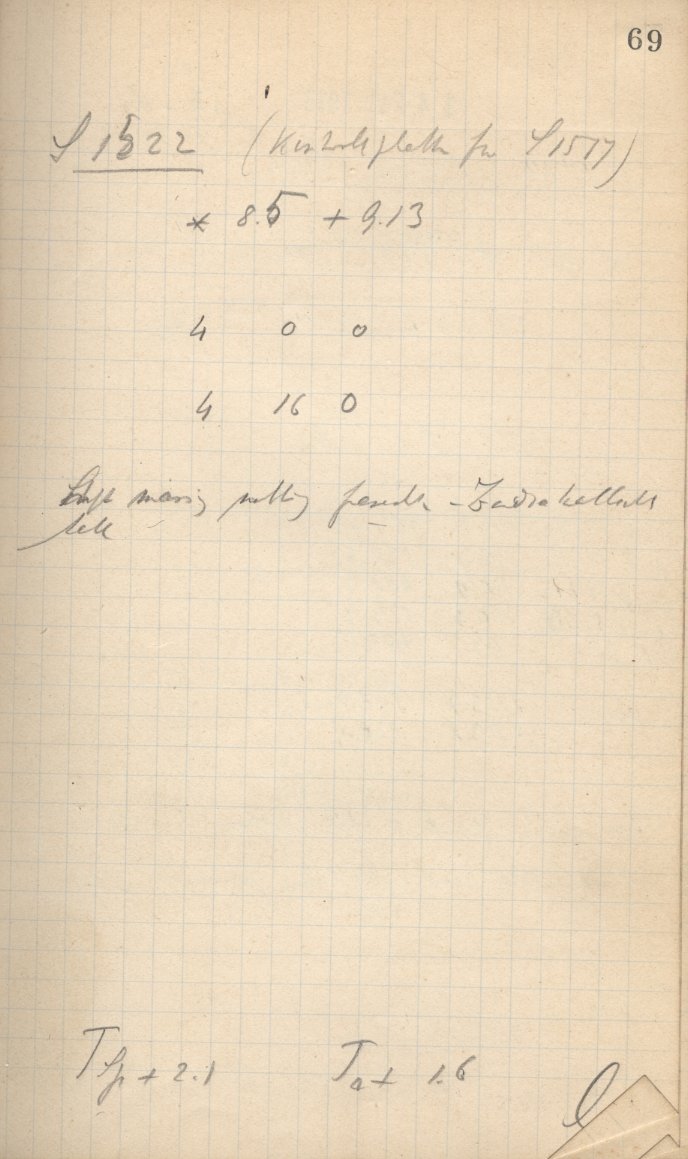 69
S 1522 (Kontrollplatte für S 1517)
* 8.5 + 9.13
4 0 0
4 16 0
Luft mässig
T Sp + 2.1 Ta + 1.6